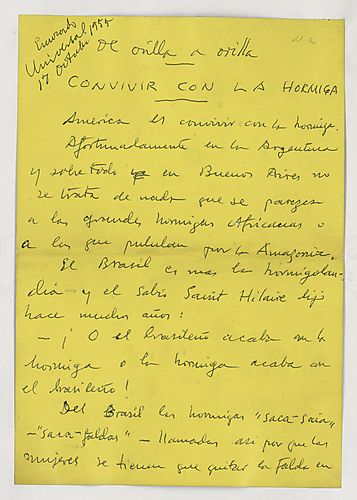 Enviado
Universal
17 Octubre 1955
De orilla a orilla
CONVIVIR CON LA HORMIGA
America es convivir con la hormiga.
Afortunadamente en la Argentina
y sobre todo en Buenos Aires no
se trata de nada que se parezca
a las grandes hormigas Africanas o
a las que pululan por la Amazonia.
El Brasil es mas la hormigolan-
dia y el Sabio Saint Hilaire dijo
hace muchos años:
- ¡O el brasileño acaba con la
hormiga o la hormiga acaba con
el brasileño!
Del Brasil las hormigas "saca-saia"
- "saca-faldas" - llamadas asi por que las
mujeres se tienen que quitar la falda en